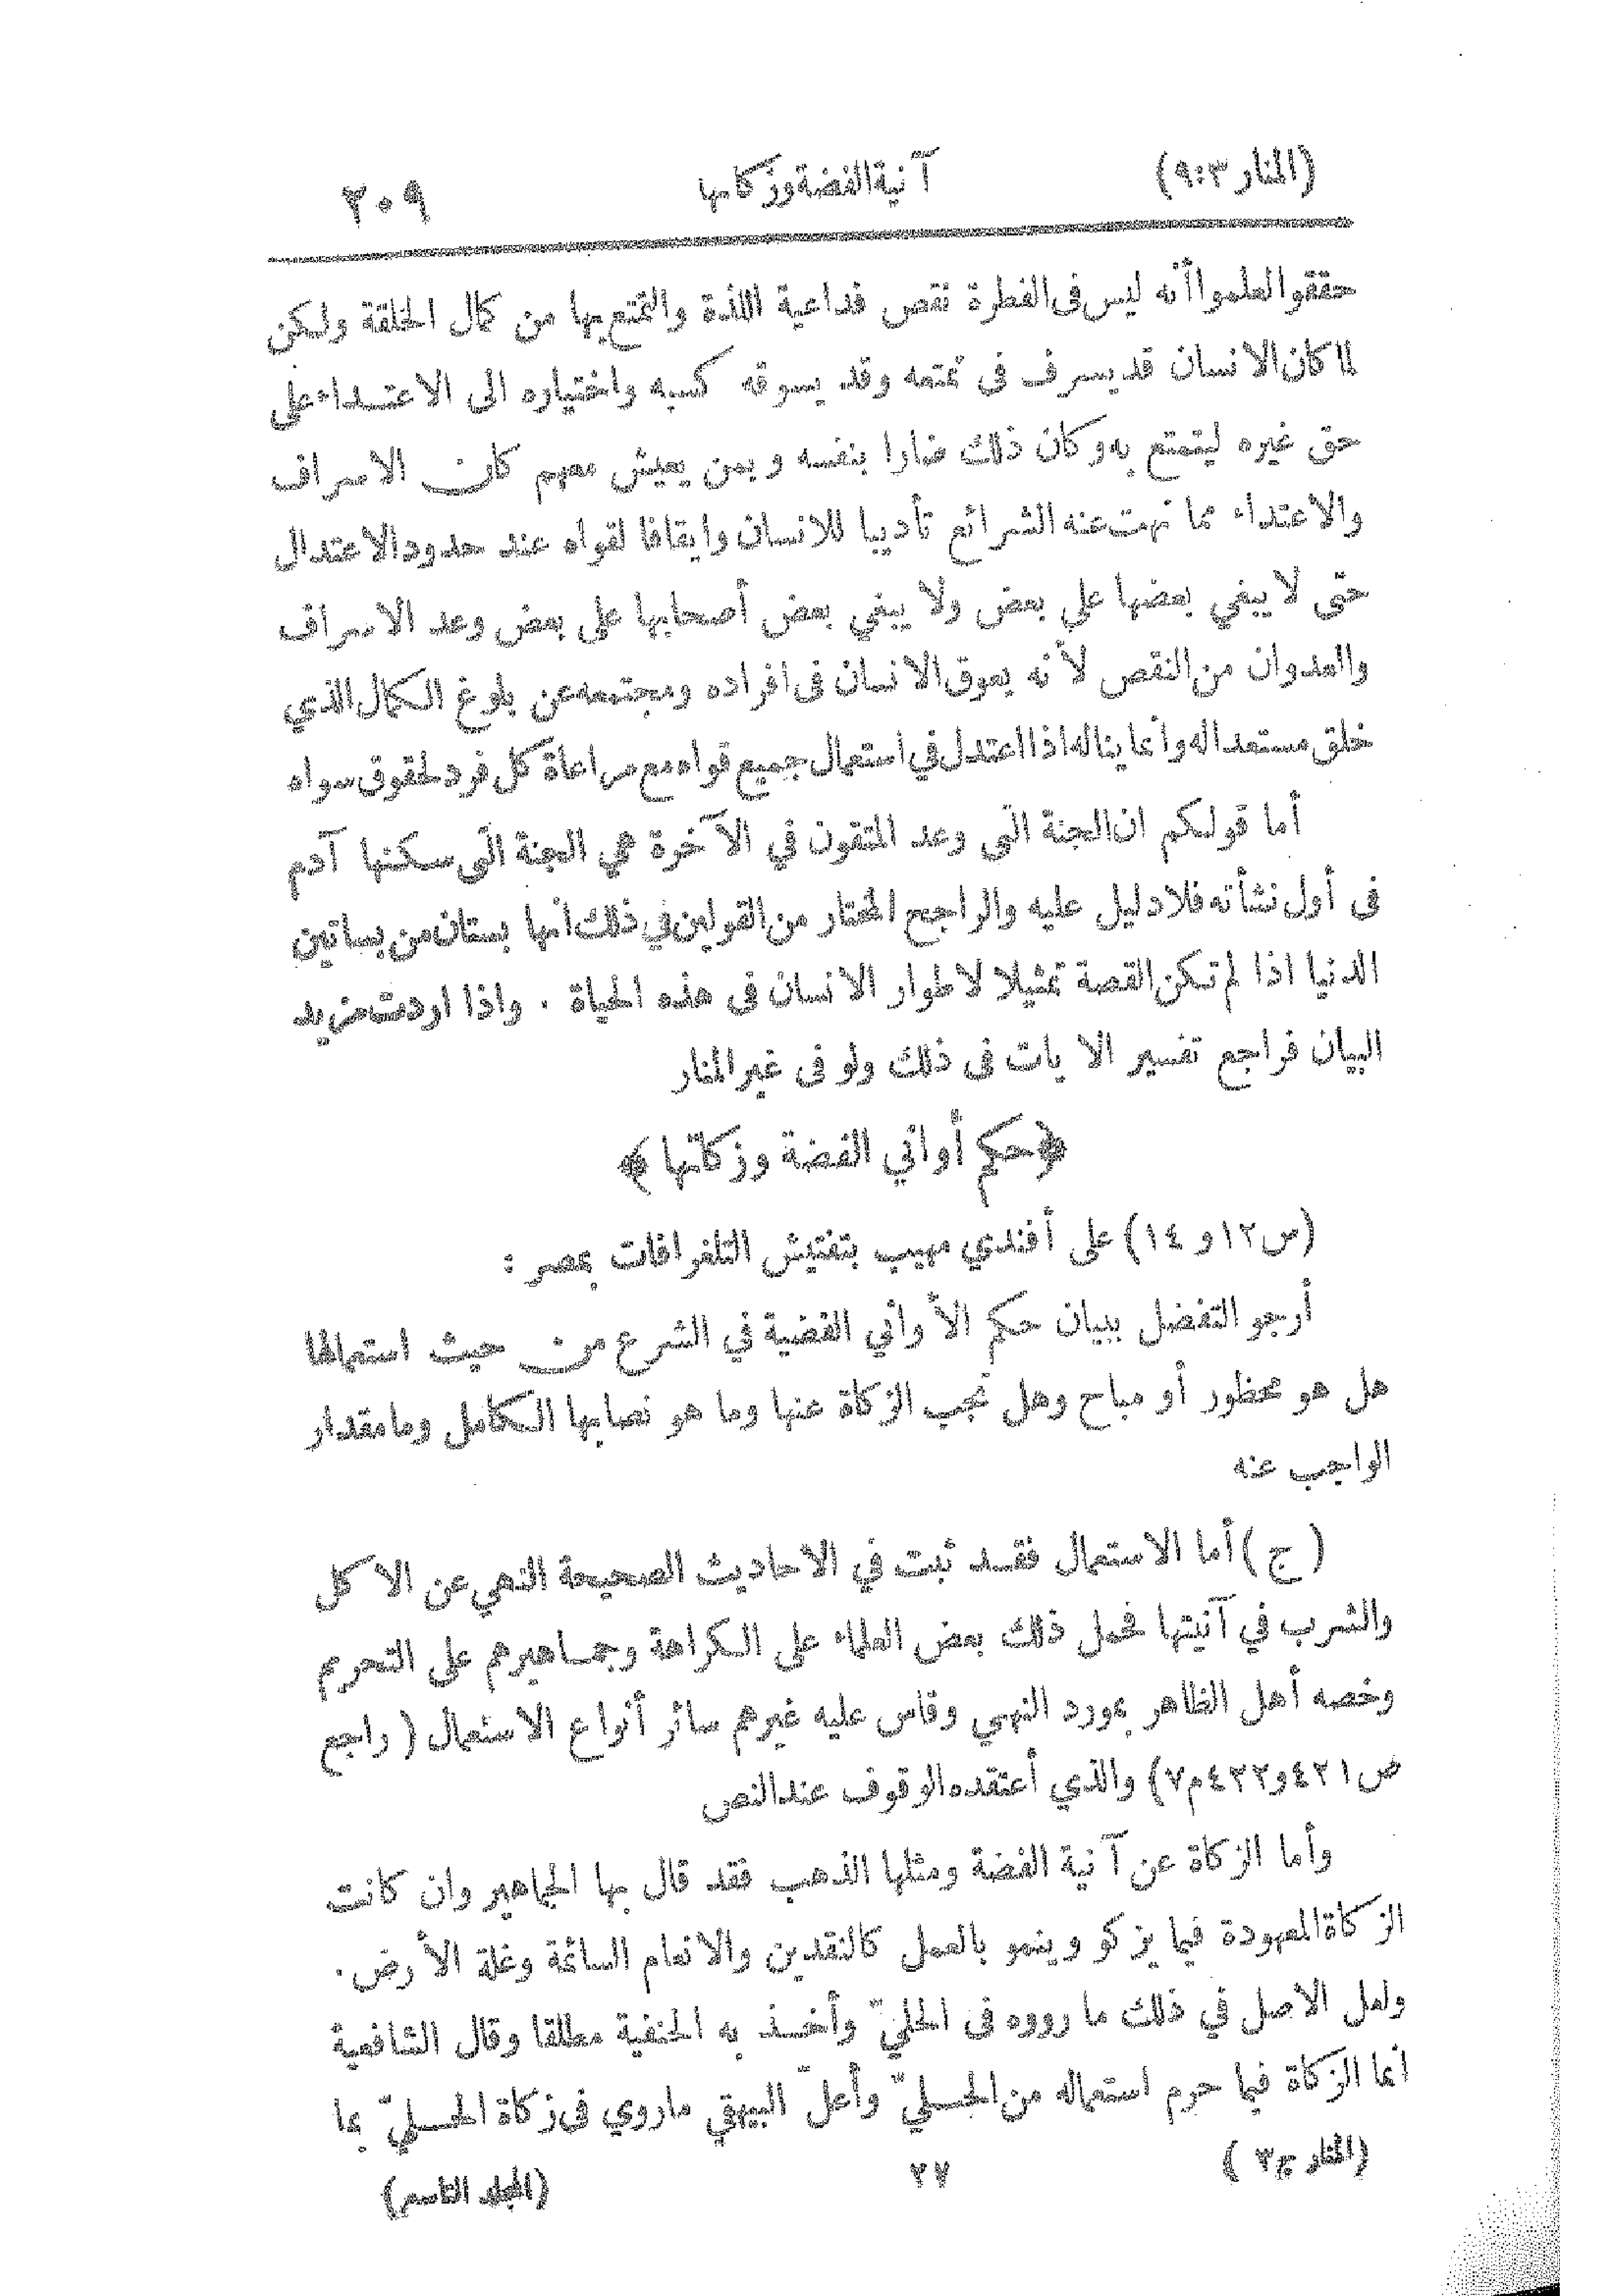 (المنار ٩:٣) آنية الفضة وزكاتها ٢٠٩
حققوا لعلموا أنه ليس فى الفطرة نقص فداعية اللذة والتمتع بها من كمال الخلقة ولكن
لما كان الانسان قد يسرف فى تمتعه وقد يسوقه كسبه واختياره الى الاعتداء على
حق غيره ليتمتع به وكان ذلك ضارا بنفسه وبمن يعيش معهم كان الاسراف
والاعتداء مما نهت عنه الشرائع تأديبا للانسان وايقافا لقواه عند حدود الاعتدال
حتى لا يبغي بعضها على بعض ولا يبغي بعض أصحابها على بعض وعد الاسراف
والعدوان من النقص لأنه يعوق الانسان فى افراده ومجتمعه عن بلوغ الكمال الذي
خلق مستعدا له وانما يناله اذا اعتدل في استعمال جميع قواه مع مراعاة كل فرد لحقوق سواه
أما قولكم ان الجنة التى وعد المتقون في الآخرة هي الجنة التى سكنها آدم
فى أول نشأته فلا دليل عليه والراجح المختار من القولين في ذلك انها بستان من بساتين
الدنيا اذا لم تكن القصة تمثيلا لاطوار الانسان فى هذه الحياة . واذا اردت مزيد
البيان فراجع تفسير الا يات فى ذلك ولو فى غير المنار
﴿حكم أواني الفضة وزكاتها﴾
(س١٢ و ١٤) على أفندي مهيب بتفتيش التلغرافات بمصر :
أرجو التفضل ببيان حكم الأواني الفضية في الشرع من حيث استعمالها
هل هو محظور أو مباح وهل تجب الزكاة عنها وما هو نصابها الكامل وما مقدار
الواجب عنه
(ج) أما الاستعمال فقد ثبت في الاحاديث الصحيحة النهي عن الاكل
والشرب في آنيتها فحمل ذلك بعض العلماء على الكراهة وجماهيرهم على التحريم
وخصه أهل الظاهر بمورد النهي وقاس عليه غيرهم سائر أنواع الاستعمال (راجع
ص٤٢١ و٤٢٢م٧) والذي أعتقده الوقوف عند النص
وأما الزكاة عن آنية الفضة ومثلها الذهب فقد قال بها الجماهير وان كانت
الزكاة المعهودة فيما يزكو وينمو بالعمل كالنقدين والانعام السائمة وغلة الأرض .
ولعل الاصل في ذلك ما رووه فى الحليّ وأخذ به الحنفية مطلقا وقال الشافعية
انما الزكاة فيما حرم استعماله من الحليّ وأعلّ البيهقي ما روي فى زكاة الحليّ بما
(المنار ج٣) ٢٧ (المجلد التاسع)